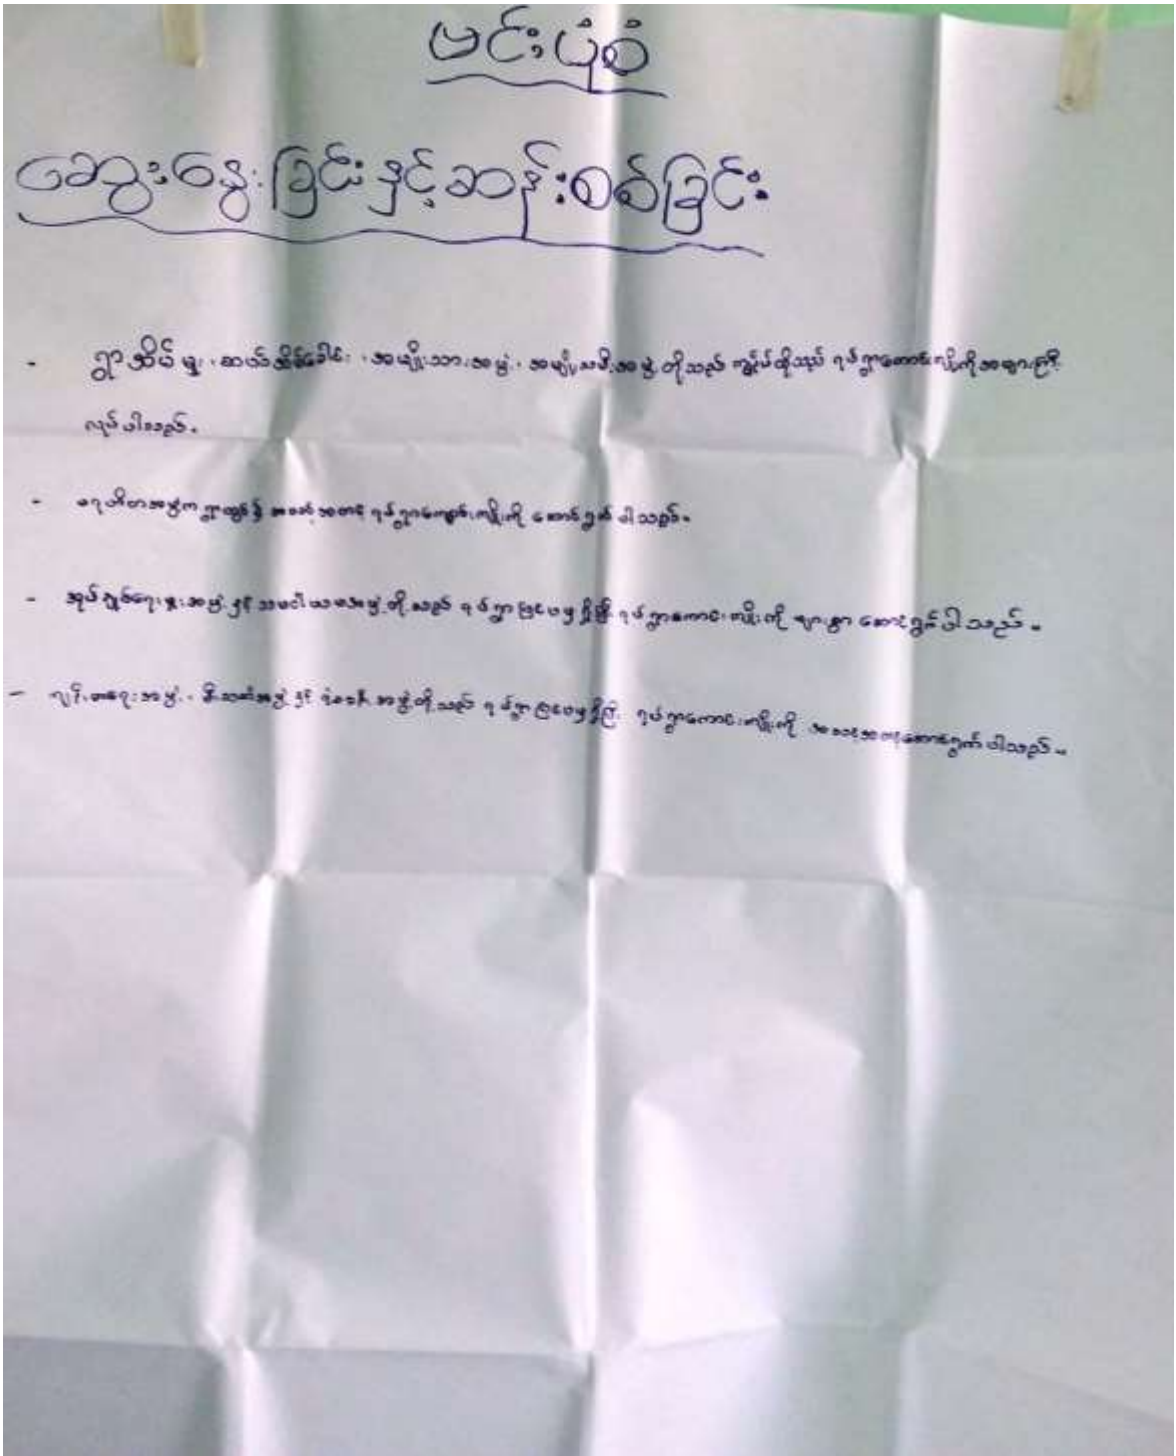 မင်းပုံစံ
ဆွေးနွေးခြင်းနှင့်ဆန်းစစ်ခြင်း
- ရွာအိမ်မှူး၊ ဆယ်အိမ်ခေါင်း၊ အမျိုးသားအဖွဲ့၊ အမျိုးသမီးအဖွဲ့တို့သည် ရပ်ရွာကောင်းကျိုးကို
လုပ်ပါသည်။
- ပရဟိတအဖွဲ့က ရွာတွင်၌ အသင့်အတင့် ရပ်ရွာကောင်းကျိုးကို ဆောင်ရွက်ပါသည်။
- အုပ်ချုပ်ရေးမှူးအဖွဲ့နှင့် သမဝါယမအဖွဲ့တို့သည် ရပ်ရွာပြင်ပမှရှိပြီး ရပ်ရွာကောင်းကျိုးကို များစွာ ဆောင်ရွက်ပါသည်။
- အဖွဲ့၊ မီးသတ်အဖွဲ့နှင့် အဖွဲ့တို့သည် ရပ်ရွာပြင်ပမှရှိပြီး ရပ်ရွာကောင်းကျိုးကို အသင့်အတင့်ဆောင်ရွက်ပါသည်။